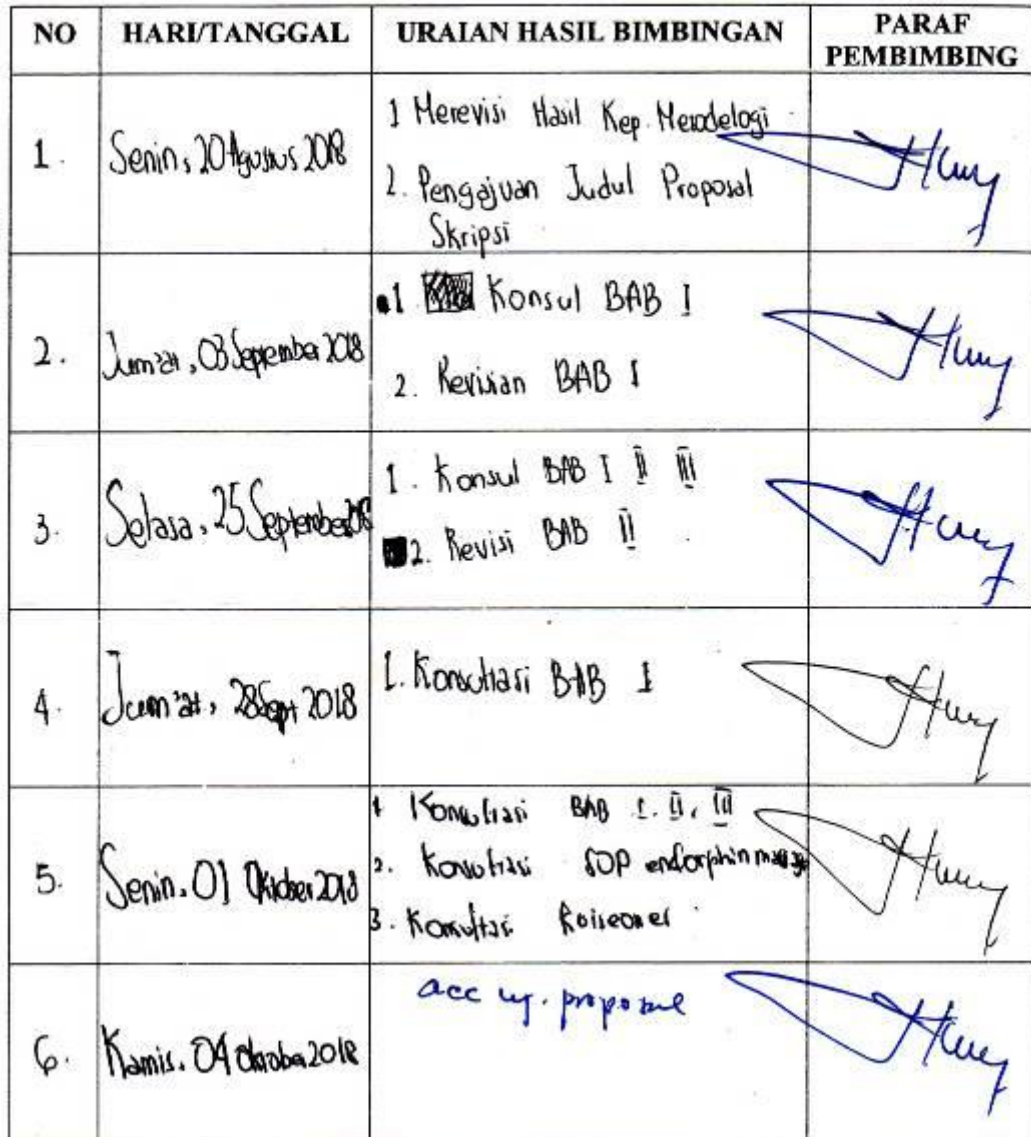 NO HARI/TANGGAL URAIAN HASIL BIMBINGAN PARAF
PEMBIMBING
1. Senin, 20 Agustus 2018 1 Merevisi Hasil Kep. Merodelogi
2. Pengajuan Judul Proposal
Skripsi
2. Jum'at, 03 September 2018 1. Konsul BAB I
2. Revisian BAB I
3. Selasa, 25 September 2018 1. Konsul BAB I II III
2. Revisi BAB II
4. Jum'at, 28 Sept 2018 1. Konsultasi BAB I
5. Senin, 01 Oktober 2018 1 Konsultasi BAB I. II. III
2. Konsultasi SOP endorphin massage
3. Konsultasi Koiseoner
6. Kamis, 04 Oktober 2018 acc uj. proposal